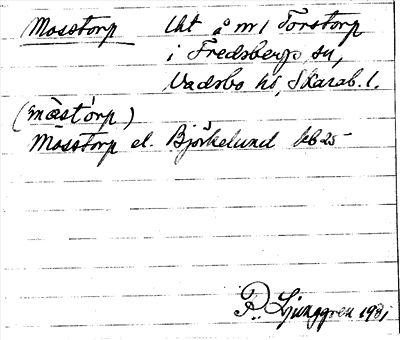 Mosstorp Uht å nr 1 Torstorp
i Fredsberg sn,
Vadsbo hd, Skarab. l.
(måst´órp)
Mosstorp el. Björkelund kb 25-
P. Ljunggren 1931